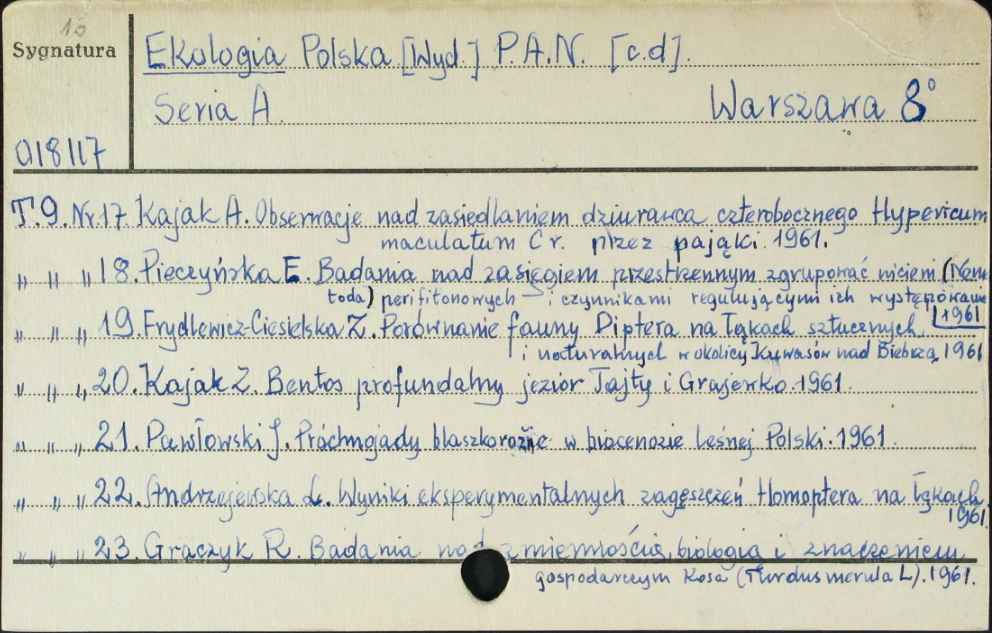 10
Sygnatura
Ekologia Polska [Wyd.] P.A.N. [c.d].
Seria A. Warszawa 8°
018117
T.9. Nr.17 Kajak A. Obserwacje nad zasiedlaniem dziurawca czterobocznego Hypericum
maculatum Cr. przez pająki. 1961.
" " " 18. Pieczyńska E. Badania nad zasięgiem przestrzennym zgrupować niciem (Nema
toda) perifitonowych i czynnikami regulującymi ich występowanie
1961
" " " 19. Frydlewicz-Ciesielska Z. Porównanie fauny Diptera na łąkach sztucznych
i naturalnych w okolicy Kuwasów nad Biebrzą. 1961
" " " 20. Kajak Z. Bentos profundalny jezior Tajty i Grajewko. 1961.
" " " 21. Pawłowski J. Próchnojady blaszkorożne w biocenozie leśnej Polski. 1961.
" " " 22. Andrzejewska L. Wyniki eksperymentalnych zagęszczeń Homoptera na łąkach
1961.
" " " 23. Graczyk R. Badania nad zmiennością, biologią i znaczeniem
gospodarczym Kosa (Turdus merula L). 1961.